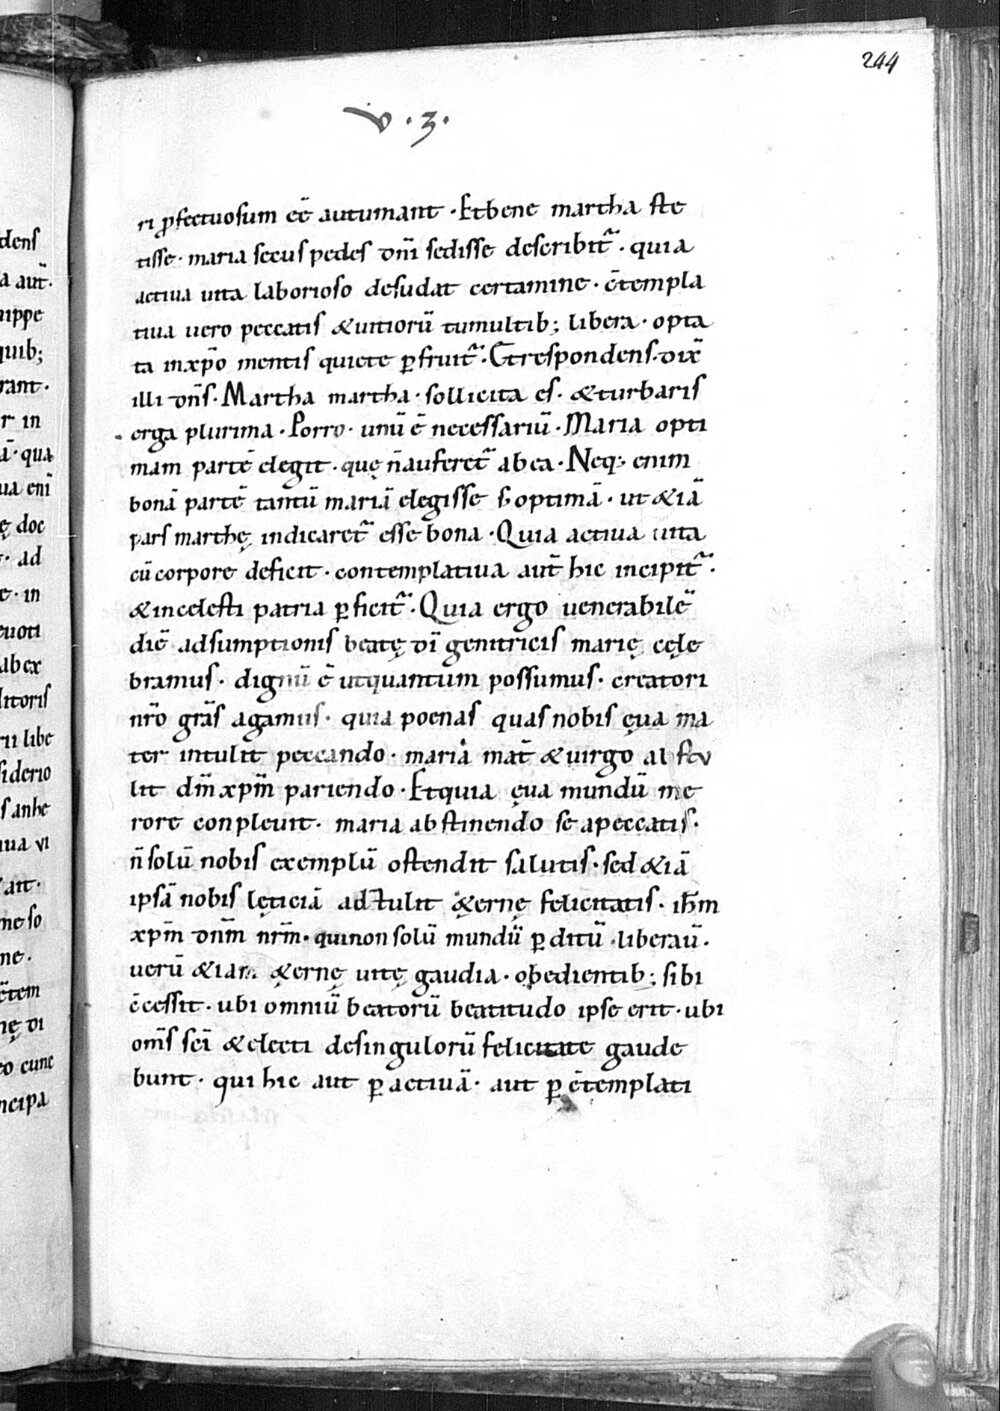 244
v · 3 ·
ri ꝓfectuosum eē autumant · Et bene martha ste
tisse · maria secus pedes dn̄i sedisse describit᷑ · quia
actiua uita laborioso desudat certamine · c̄templa
tiua uero peccatis &uitiorū tumultib; libera · opta
ta inxp̄o mentis quiete ꝑfruit᷑ · Et respondens · dix̄
illi dn̄s · Martha martha · sollicita es · &turbaris
erga plurima · Porro · unū ē necessariū · Maria opti
mam partē elegit · quę n̄auferet᷑ abea · Neq; enim
bonā partē tantū mariā elegisse s̄ optimā · ut &iā
pars marthę indicaret᷑ esse bona · Quia actiua uita
cū corpore deficit · contemplatiua aut̄ hic incipit᷑ ·
&incelesti patria ꝑficit᷑ · Quia ergo uenerabilē
diē adsumptionis beatę dī genitricis marię cęle
bramus · dignū ē utquantum possumus · creatori
nr̄o grās agamus · quia poenas quas nobis ęua ma
ter intulit peccando · maria mat̄ &uirgo abstu
lit dn̄m xpm̄ pariendo · Etquia ęua mundū me
rore conpleuit · maria abstinendo se apeccatis ·
n̄ solū nobis exemplū ostendit salutis · sed &iā
ipsā nobis lęticiā adtulit &ęrnę felicitatis · ih̄m
xpm̄ dn̄m nr̄m · quinon solū mundū ꝑditū · liberau̅ ·
uerū &iam &ęrnę uitę gaudia · obedientib; sibi
c̄cessit · ubi omniū beatorū beatitudo ipse erit · ubi
om̄s sc̄i &electi desingulorū felicitate gaude
bunt · qui hic aut ꝑ actiuā · aut ꝑ c̄templati